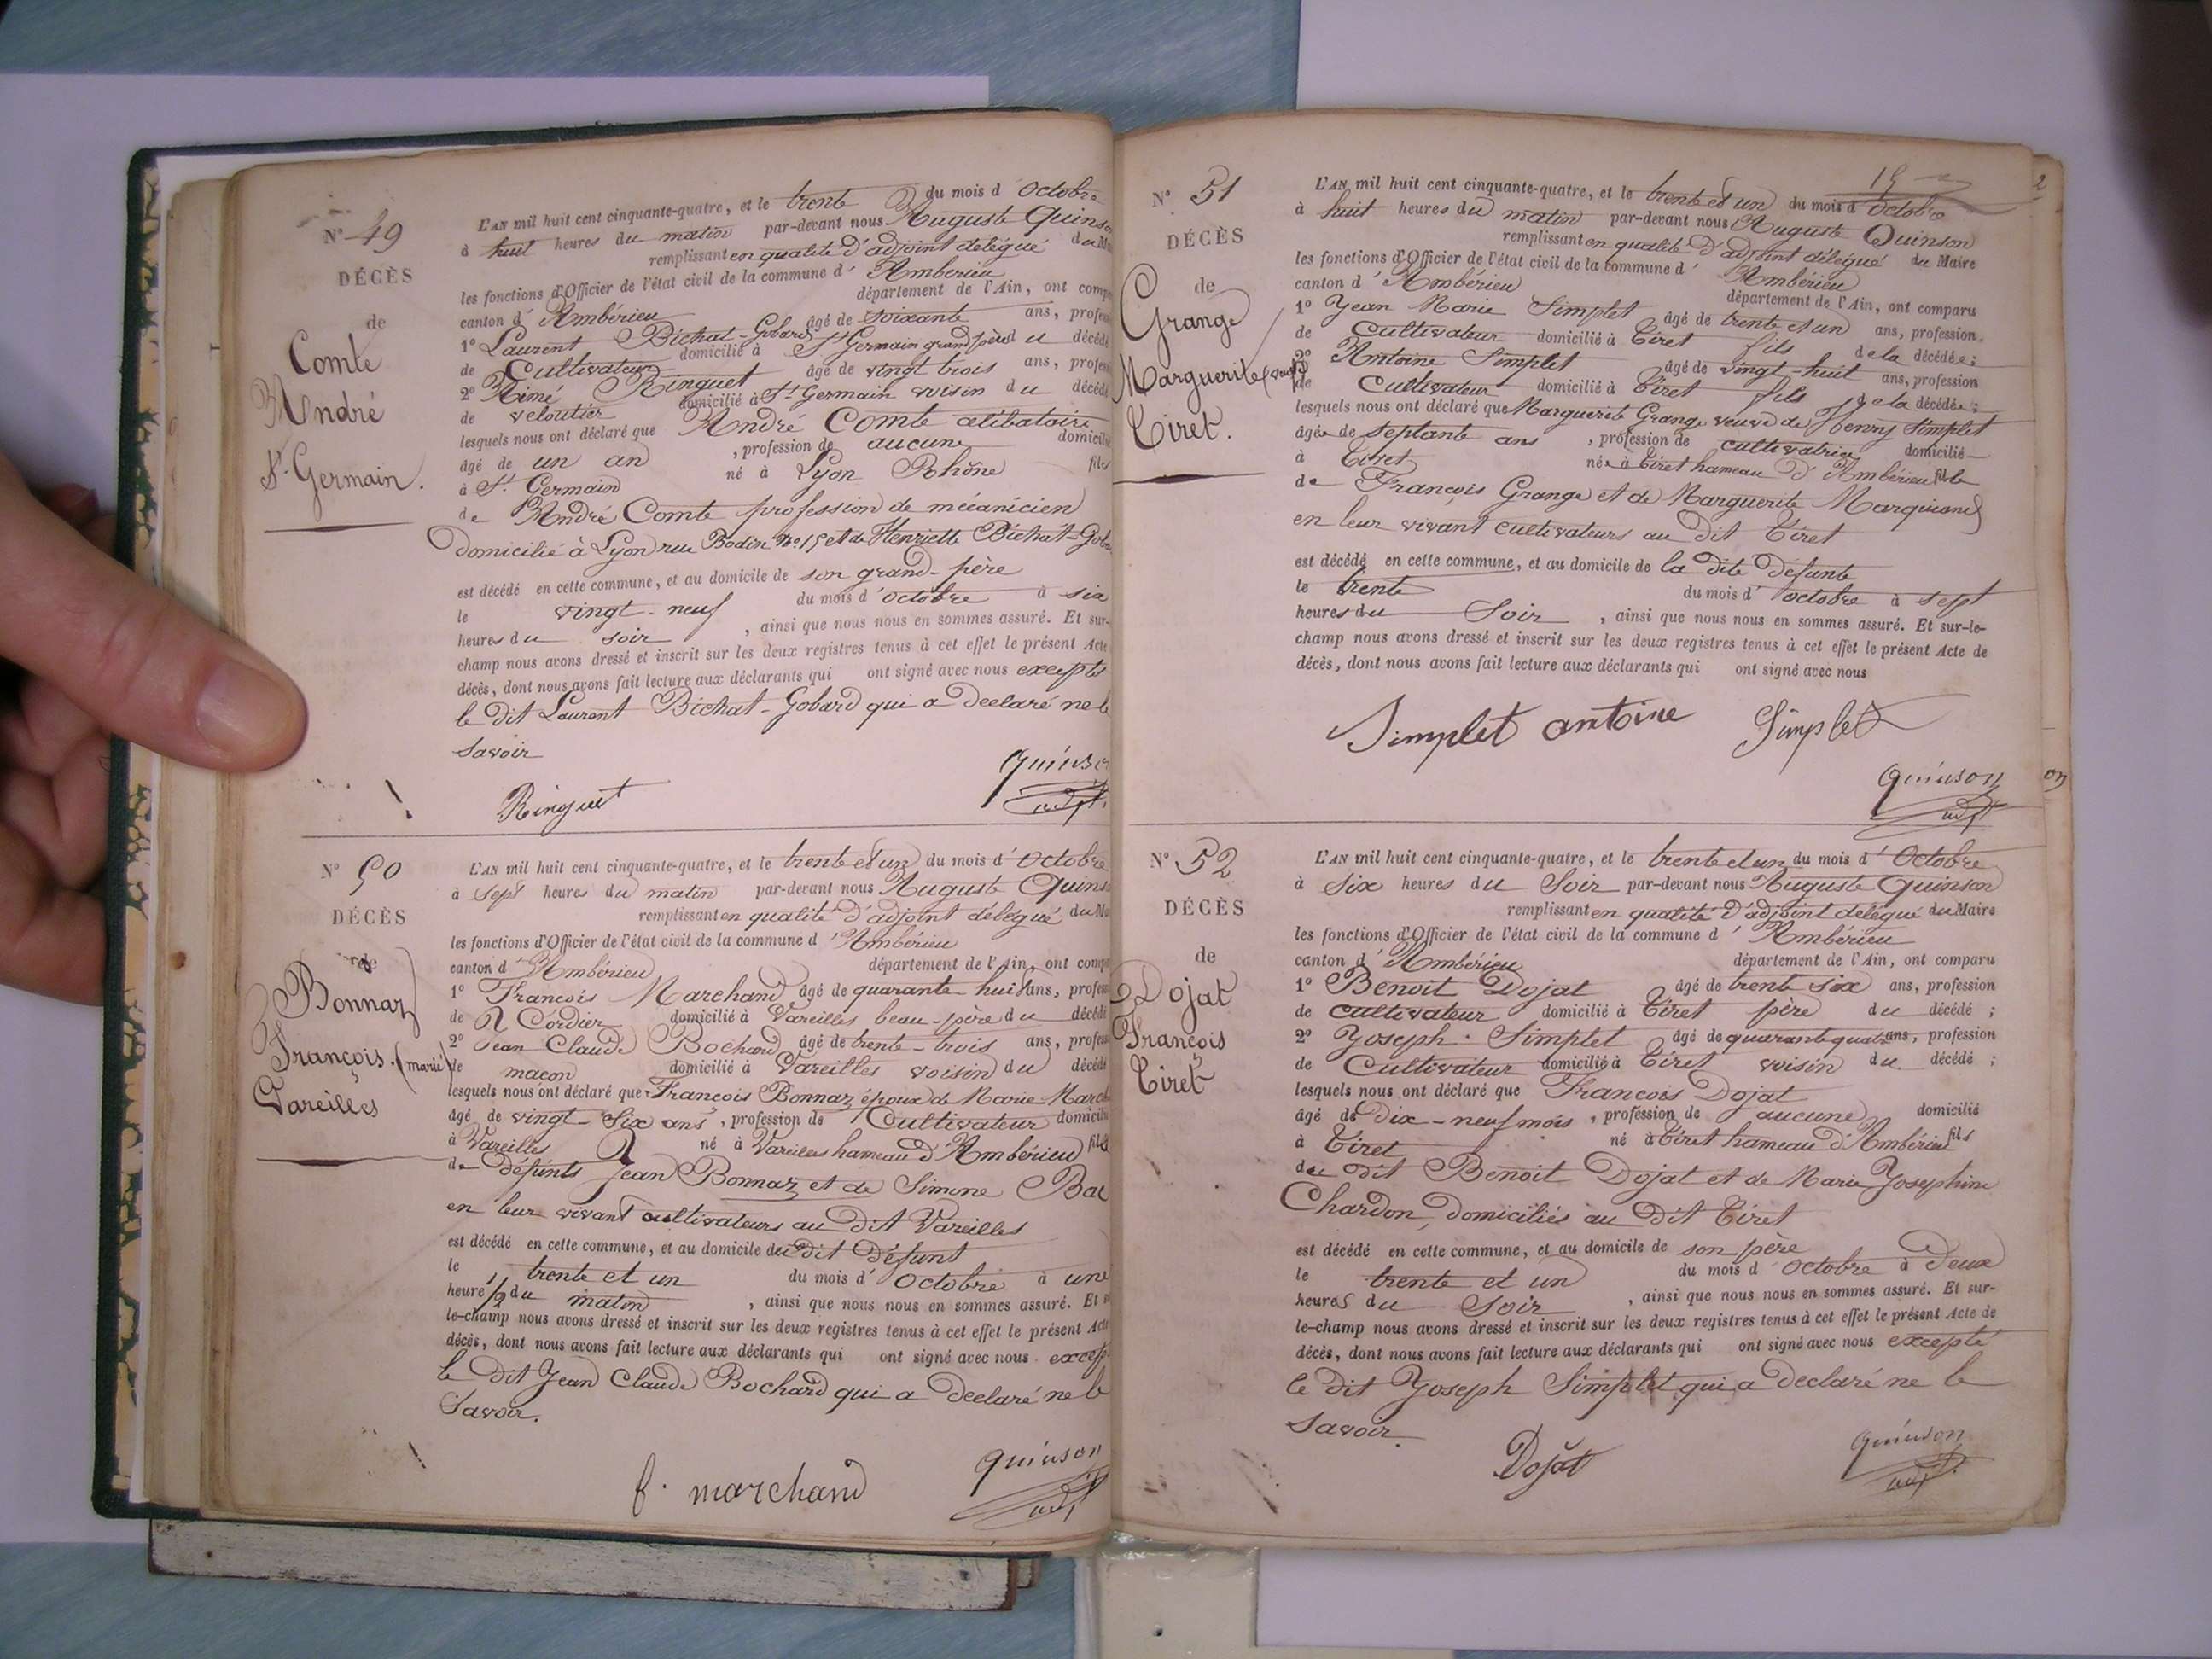 N° 49
DÉCÈS
de
Comte
André
St Germain.
L'AN mil huit cent cinquante-quatre, et le trente du mois d' Octobre
à huit heures du matin par-devant nous Auguste Quinson
remplissant en qualité d'adjoint délégué du
les fonctions d'Officier de l'état civil de la commune d' Ambérieu
canton d' Ambérieu département de l'Ain, ont
1° Laurent Bichat-Gobard âgé de soixante ans,
de Cultivateur domicilié à St Germain grand père du décédé
2° Aimé Ringuet âgé de vingt trois ans,
de veloutier domicilié à St Germain voisin du décédé
lesquels nous ont déclaré que André Comte célibataire
âgé de un an , profession de aucune domicilié
à St Germain né à Lyon Rohône fils
de André Comte profession de mécanicien
domicilié à Lyon rue Bodin No 15 et de Henriette Bichat-
est décédé en cette commune, et au domicile de son grand-père
le vingt-neuf du mois d'octobre à six
heures du soir , ainsi que nous nous en sommes assuré. Et sur-
champ nous avons dressé et inscrit sur les deux registres tenus à cet effet le présent Acte
décès, dont nous avons fait lecture aux déclarants qui ont signé avec nous excepté
le dit Laurent Bichat-Gobard qui a declaré ne le
savoir
Ringuet
quinson
adjt
N° 50
DÉCÈS
de
Bonnaz
François (marié)
Vareilles
L'AN mil huit cent cinquante-quatre, et le trente et un du mois d' Octobre
à sept heures du matin par-devant nous Auguste
remplissant en qualité d'adjoint délégué du
les fonctions d'Officier de l'état civil de la commune d' Ambérieu
canton d' Ambérieu département de l'Ain, ont
1° François Marchand âgé de quarante-huit ans,
de Cordier domicilié à Vareilles beau-père du décédé
2° Jean Claude Bochard âgé de trente-trois ans,
de maçon domicilié à Vareilles voisin du décédé
lesquels nous ont déclaré que François Bonnaz époux de Marie
âgé de vingt-six ans , profession de Cultivateur domicilié
à Vareilles né à Vareilles hameau d'Ambérieu fils
de défunts Jean Bonnaz et de Simone
en leur vivant cultivateurs au dit Vareilles
est décédé en cette commune, et au domicile du dit défunt
le trente et un du mois d' Octobre à une
heure 1/2 du matin , ainsi que nous nous en sommes assuré. Et
le-champ nous avons dressé et inscrit sur les deux registres tenus à cet effet le présent Acte
décès, dont nous avons fait lecture aux déclarants qui ont signé avec nous
le dit Jean Claude Bochard qui a declaré ne le
Savoir.
f. marchand
quinson
adjt
19
2
N° 51
DÉCÈS
de
Grange
Marguerite
Tiret.
L'AN mil huit cent cinquante-quatre, et le trente et un du mois d' Octobre
à huit heures du matin par-devant nous Auguste Quinson
remplissant en qualité d'adjoint délégué du Maire
les fonctions d'Officier de l'état civil de la commune d' Ambérieu
canton d' Ambérieu département de l'Ain, ont comparu
1° Jean Marie Simplet âgé de trente et un ans, profession
de Cultivateur domicilié à Tiret fils de la décédée ;
2° Antoine Simplet âgé de vingt-huit ans, profession
de Cultivateur domicilié à Tiret fils de la décédée ;
lesquels nous ont déclaré que Marguerite Grange veuve de Henry Simplet
âgée de septante ans , profession de cultivatrice domicilié
à Tiret née à Tiret hameau d'Ambérieu fille
de François Grange et de Marguerite Marquiand
en leur vivant cultivateurs au dit Tiret
est décédé en cette commune, et au domicile de la dite défunte
le trente du mois d' octobre à sept
heures du Soir , ainsi que nous nous en sommes assuré. Et sur-le-
champ nous avons dressé et inscrit sur les deux registres tenus à cet effet le présent Acte de
décès, dont nous avons fait lecture aux déclarants qui ont signé avec nous
Simplet antoine Simplet
quinson
adjt
on
N° 52
DÉCÈS
de
Dojat
François
Tiret
L'AN mil huit cent cinquante-quatre, et le trente et un du mois d' Octobre
à Six heures du Soir par-devant nous Auguste Quinson
remplissant en qualité d'adjoint délégué du Maire
les fonctions d'Officier de l'état civil de la commune d' Ambérieu
canton d' Ambérieu département de l'Ain, ont comparu
1° Benoit Dojat âgé de trente six ans, profession
de cultivateur domicilié à Tiret père du décédé ;
2° Joseph Simplet âgé de quarante quatre ans, profession
de Cultivateur domicilié à Tiret voisin du décédé ;
lesquels nous ont déclaré que François Dojat
âgé de dix-neuf mois , profession de aucune domicilié
à Tiret né à Tiret hameau d'Ambérieu fils
du dit Benoit Dojat et de Marie Josephine
Chardon, domiciliés au dit Tiret
est décédé en cette commune, et au domicile de son père
le trente et un du mois d' Octobre à Deux
heures du Soir , ainsi que nous nous en sommes assuré. Et sur-
le-champ nous avons dressé et inscrit sur les deux registres tenus à cet effet le présent Acte de
décès, dont nous avons fait lecture aux déclarants qui ont signé avec nous excepté
le dit Joseph Simplet qui a declaré ne le
savoir.
Dojat
quinson
adjt